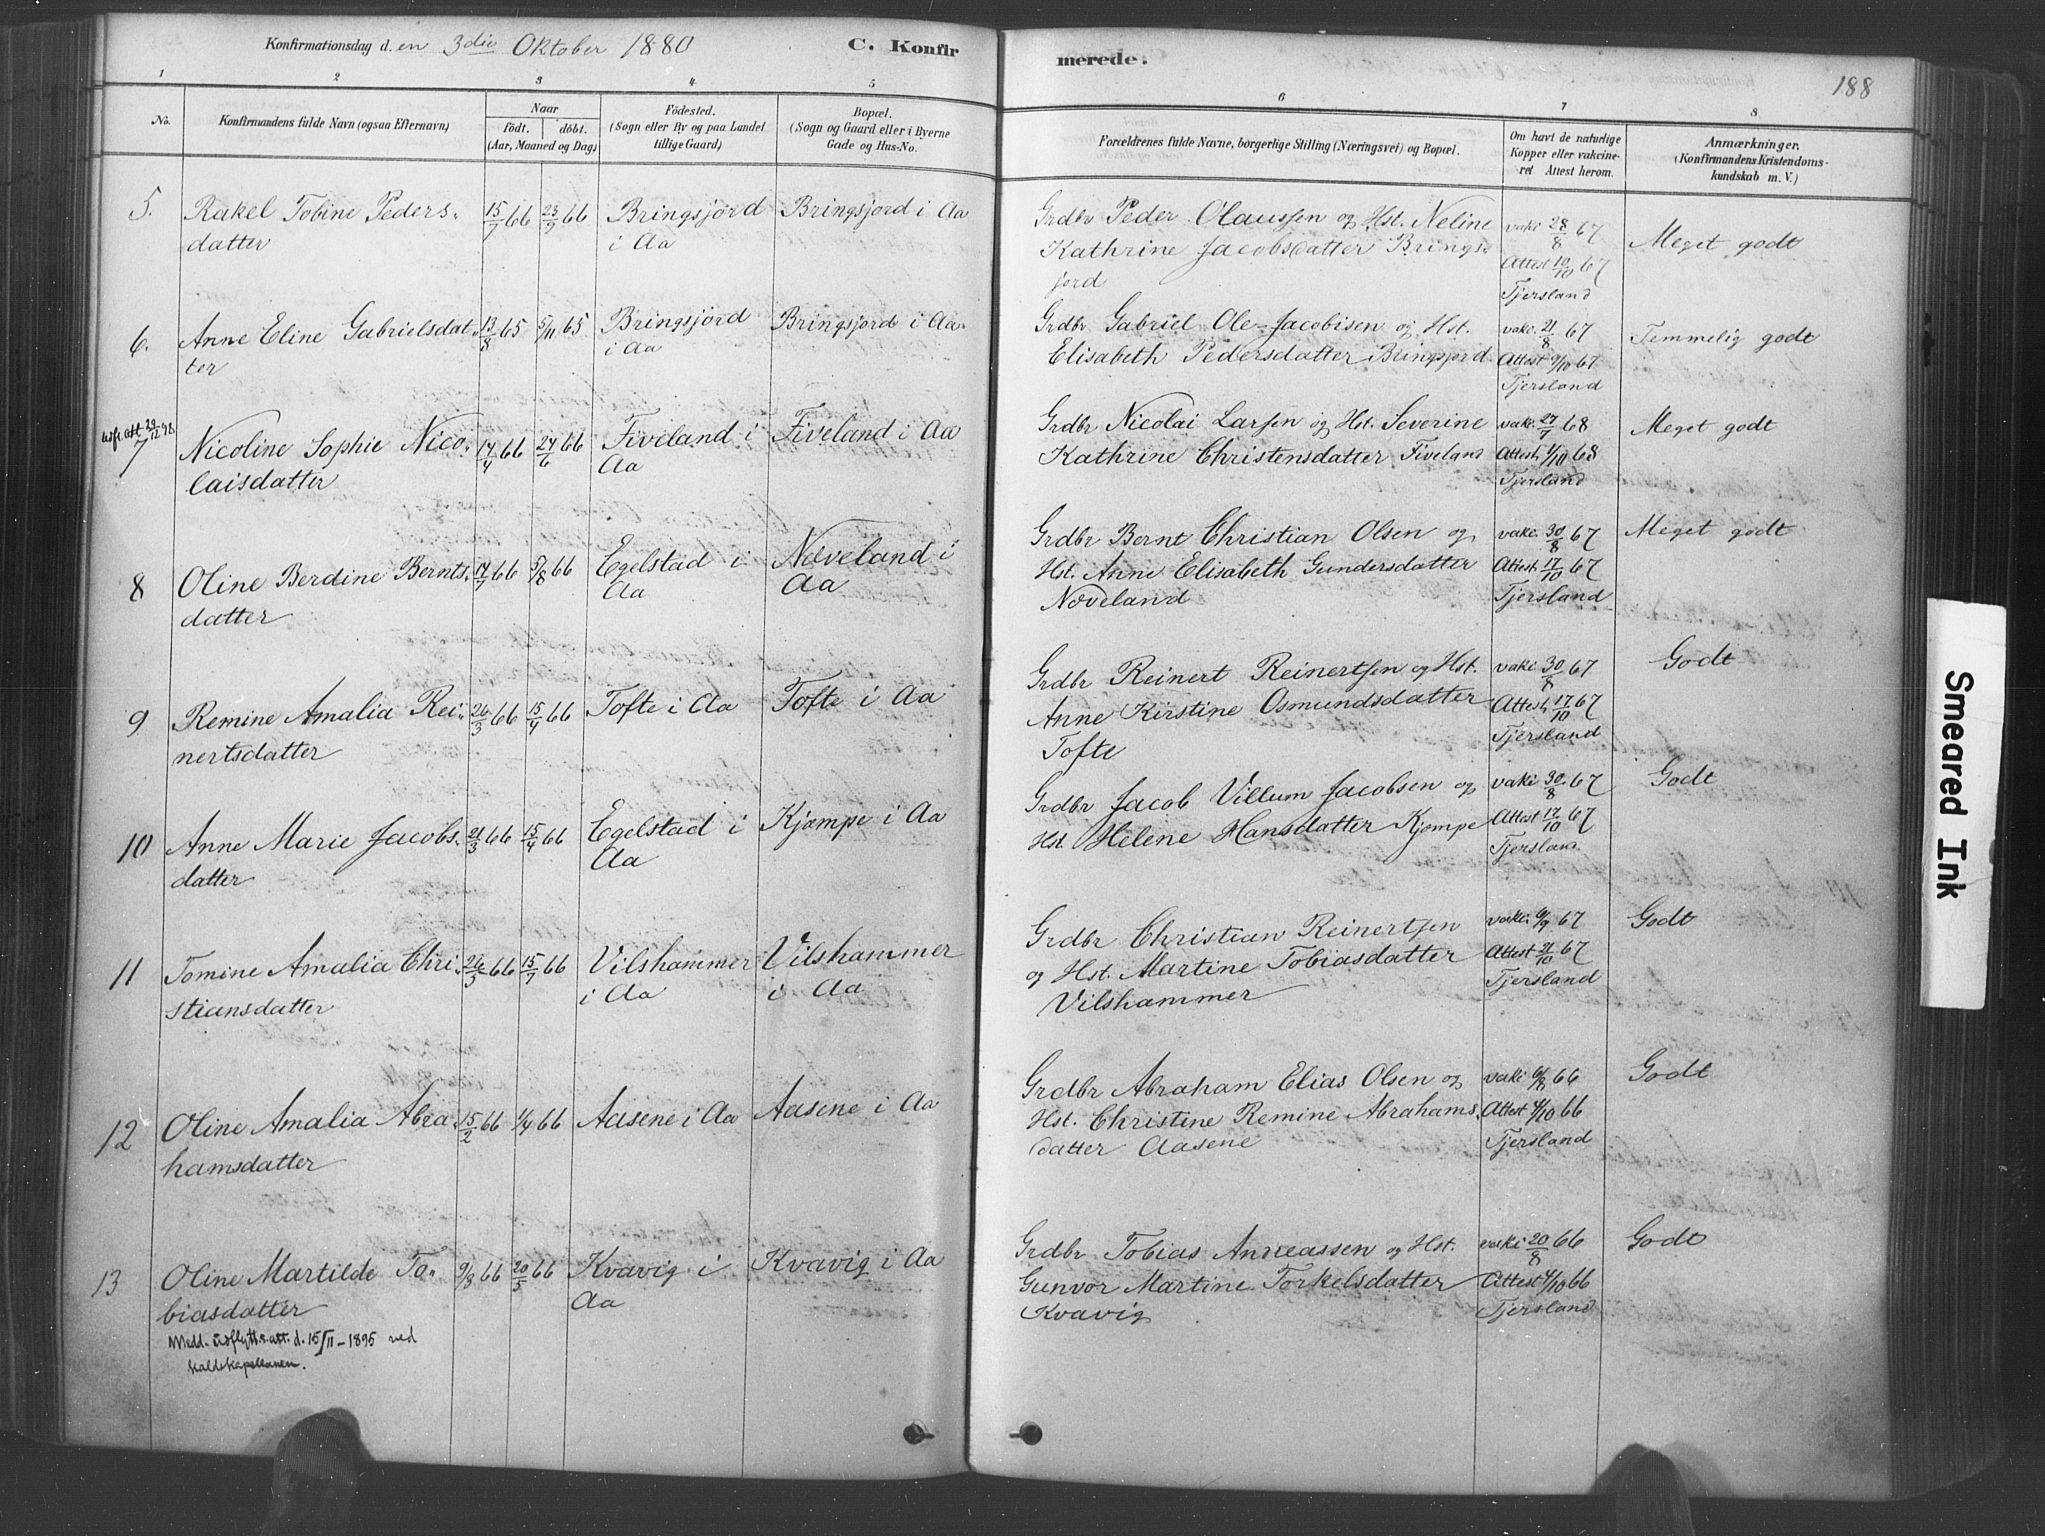 Konfirmationsdag d. en 3die Oktober 1880
C. Konfirmerede.
188
1 2 3 4 5 6 7 8
No.
Konfirmandens fulde Navn (ogsaa Efternavn)
Naar
født. døbt.
(Aar, Maaned og Dag)
Fødested.
(Sogn eller By og paa Landet
tillige Gaard)
Bopæl.
(Sogn og Gaard eller i Byerne
Gade og Hus-No.
Forældrenes fulde Navne, borgerlige Stilling (Næringsvei) og Bopæl.
Om havt de naturlige
Kopper eller vakcine-
ret Attest herom.
Anmærkninger.
(Konfirmandens Kristendoms-
kundskab m. V.)
5. Rakel Tobine Peders- 15/7 66 23/9 66 Bringsjord Bringsjord i Aa Grdbr Peder Olaussen og Hst. Neline vaki 28/8 67
datter i Aa Kathrine Jacobsdatter Brings- Attest 10/10 67 Meget godt
jord Tjersland
6. Anne Eline Gabrielsdat- 13/8 65 5/11 65 Bringsjord Bringsjord i Aa Grdbr Gabriel Ole Jacobisen og Hst. vakc. 21/8 67 Temmelig godt
ter i Aa Elisabeth Pedersdatter Bringsjord Attest 9/10 67
Tjersland
Udfl. att 29/12 98
7 Nicoline Sophie Nico- 17/4 66 24/6 66 Fiveland i Fiveland i Aa Grdbr Nicolai Larsen og Hst. Severine vakc. 27/7 68 Meget godt
laisdatter Aa Kathrine Christensdatter Fiveland Attest 1/10 68
Tjersland
8 Oline Berdine Bernts- 14/7 66 5/8 66 Egelstad i Nøveland i Grdbr Bernt Christian Olsen og vakc. 30/8 67 Meget godt
datter Aa Aa Hst. Anne Elisabeth Gundersdatter Attest 17/10 67
Nøveland Tjersland
9 Remine Amalia Rei- 26/3 66 15/4 66 Tofte i Aa Tofte i Aa Grdbr Reinert Reinertsen og Hst. vaki 30/8 67 Godt
nertsdatter Anne Kirstine Osmundsdatter Attest 17/10 67
Tofte Tjersland
10 Anne Marie Jacobs- 21/3 66 15/4 66 Egelstad i Kjømpe i Aa Grdbr Jacob Villum Jacobsen og vaki 30/8 67 Godt
datter Aa Hst. Helene Hansdatter Kjømpe Attest 17/10 67
Tjersland
11 Tomine Amalia Chri- 26/5 66 15/7 66 Vilshammer Vilshammer Grdbr Christian Reinertsen vaki 6/9 67 Godt
stiansdatter i Aa i Aa og Hst. Martine Tobiasdatter Attest 21/10 67
Vilshammer Tjersland
12 Oline Amalia Abra- 15/2 66 1/4 66 Aasene i Aa Aasene i Aa Grdbr Abraham Elias Olsen og vaki 6/8 66 Godt
hamsdatter Hst. Christine Remine Abrahams- Attest 4/10 66
datter Aasene Tjersland
13 Oline Martilde To- 9/3 66 20/5 66 Kvavig i Kvavig i Aa Grdbr Tobias Andreassen og Hst. vaki 20/8 66 Godt
biasdatter Aa Gunvor Martine Torkelsdatter Attest 4/10 66
Kvavig Tjersland
Medd. udflytts.att. d. 15/11-1895 ved
kaldskapellanen.
Smeared Ink